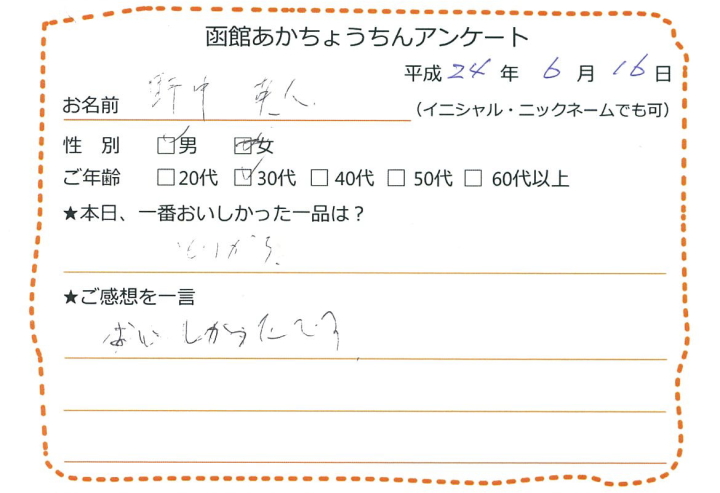 函館あかちょうちんアンケート
平成 24 年 6 月 16 日
お名前 野中
(イニシャル・ニックネームでも可)
性 別 □男 □女
ご年齢 □20代 □30代 □40代 □50代 □60代以上
★本日、一番おいしかった一品は？
とりから
★ご感想を一言
おいしかったです